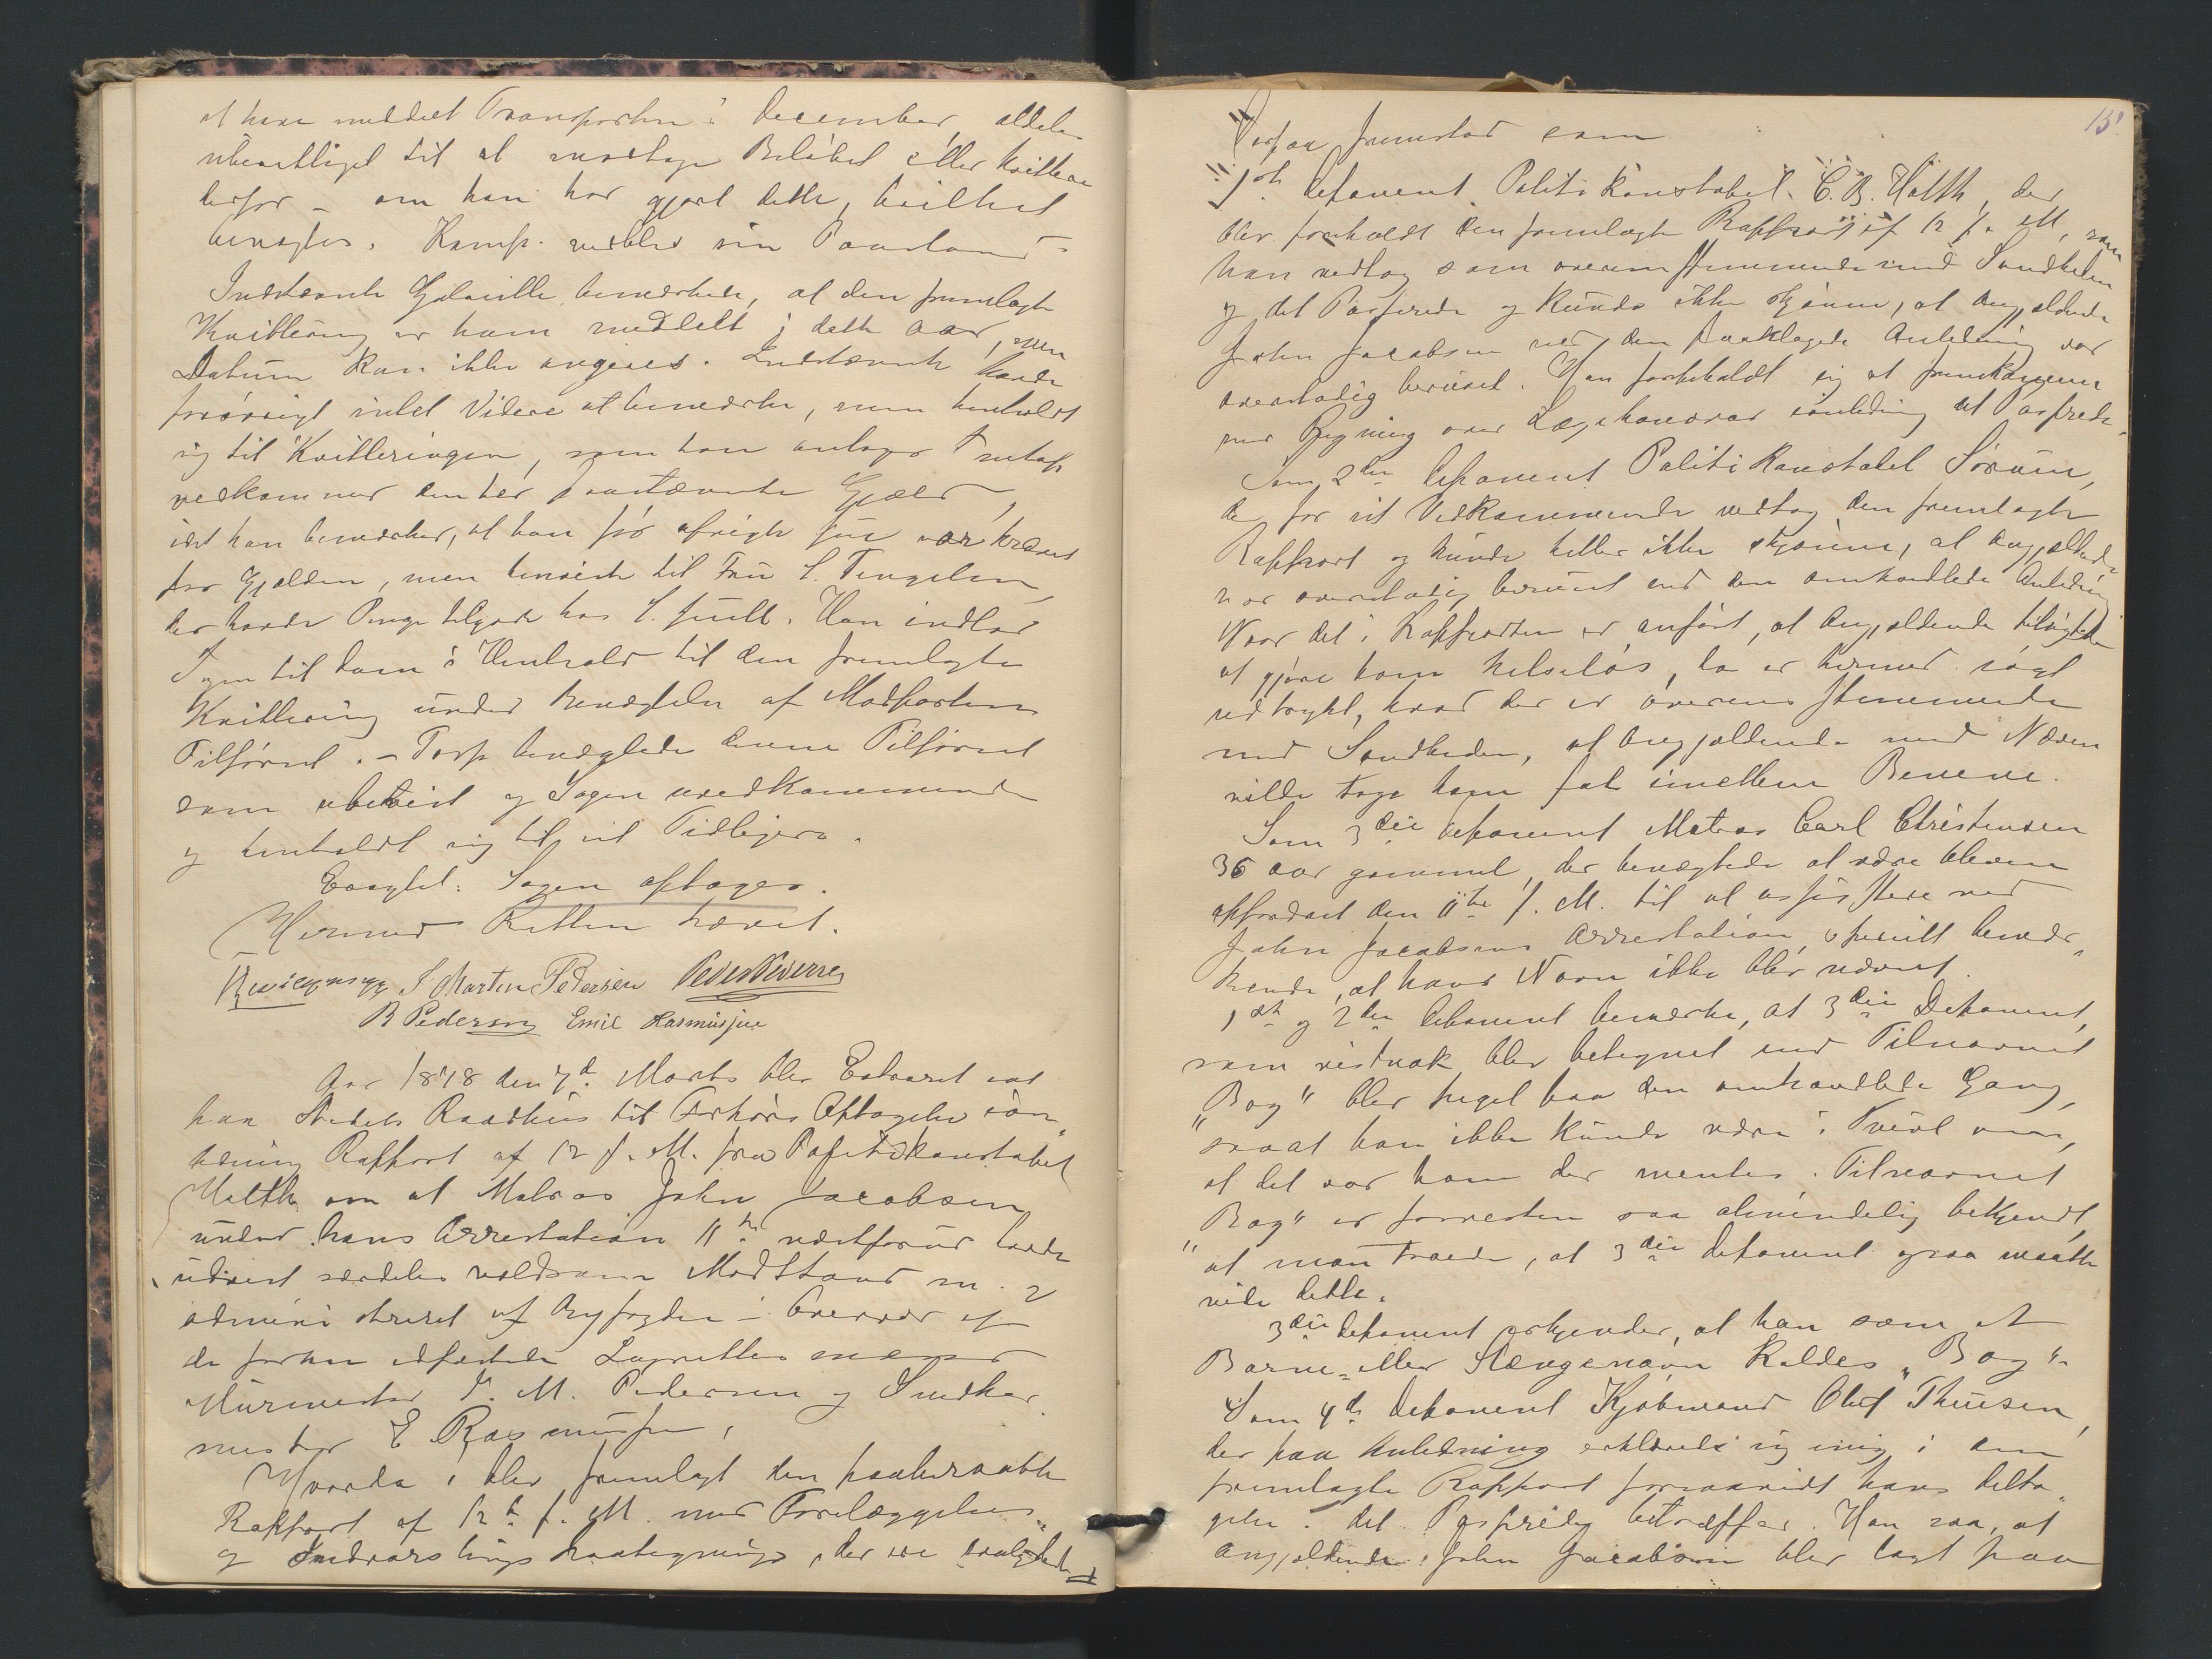 at have meddelt Transporten i December, aldeles
uberettiget til at modtage Beløbet eller kvittere
derfor – om han har gjort dette, hvilket
benegtes. Komp. vedblev sin Paastand
Indstevnte Gulowille bemærkede, at den fremlagte
Kvittering er ham meddelt i dette Aar, men
Datum kan ikke angives. Indstevnte havde
forøvrigt intet Videre at bemærke, men henholdt
sig til Kvitteringen, som han antager
vedkommer den her paastevnte Gjæld,
idet han bemærker, at han før afvigte Jul var krævet
for Gjælden, men henviste til Fru S. Tengelsen,
der havde Penge tilgode hos S. Juell. Han indlod
Sagen til Dom i Henhold til den fremlagte
Kvittering under Benægtelse af Modpartens
Tilførsel. – Torp benægtede denne Tilførsel
som ubevist og Sagen uvedkommende
og henholdt sig til sit Tidligere.
Eragtet: Sagen optages.
Hermed Retten hævet.
S Martin Pedersen Peder Siversen
B Pedersen Emil Rasmussen
Aar 1878 den 7d. Marts blev Extraret sat
paa Stedets Raadhus til Forhørs Optagelse i an-
ledning Rapport af 12 f. M. fra Politikonstabel
Holth om at Matros John Jacobsen
under hans Arrestation 11te næstforud havde
udvist særdeles voldsom Modstand m. v.
administreret af Byfogden i Overvær af
de forhen edfæstede Lagrettesmænd
Murmester S. M. Pedersen og Snedker
mester E Rasmussen,
Hvorda, blev fremlagt den paaberaabte
Rapport af 12te f. M. med Forelæggelses
og Indvarslings Paategning, der
15.
Derpaa fremstod som
1ste Deponent Politikonstabel C. B. Holth, der
blev foreholdt den fremlagte Rapport af 12 f. M, som
han vedtog som overensstemmende med Sandheden
og det Passerede og kunde ikke skjønne, at Angjældende
John Jacobsen ved den paaklagede Anledning var
overstadig beruset. Han forbeholdt sig at fremkomme
med Regning over Lægehonorar i anledning det Passerede.
Som 2den Deponent Politikonstabel Sørum,
der for sit Vedkommende vedtog den fremlagte
Rapport og kunde heller ikke skjønne, at Angjældende
var overstadig beruset ved den omhandlede Anledning
Naar det i Rapporten er anført, at Angjældende tilsigtede
at gjøre ham helseløs, da er hermed søgt
udtrykt, hvad der er overensstemmende
med Sandheden, at Angjældende med Næven
vilde tage ham fat imellem Benene.
Som 3die Deponent Matros Carl Christensen
36 Aar gammel, der benægtede at være bleven
opfordret den 11te f. M. til at assistere ved
John Jacobsens Arrestation, specielt bemær-
kende, at hans Navn ikke blev nævnt.
1ste og 2den Deponent bemærke, at 3die Deponent,
som vistnok blev betegnet med Tilnavnet
"Bog" blev peget paa den omhandlede Gang,
saaat han ikke kunde være i Tvivl om,
at det var ham der mentes. Tilnavnet
"Bog" er forresten saa almindelig bekjendt,
at man troede, at 3die Deponent ogsaa maatte
vide dette.
3die Deponent erkjender, at han som et
Barne- eller Slængenavn kaldes "Bog".
Som 4de Deponent Kjøbmand Oluf Thuesen,
der paa Anledning erklærede sig enig i den
fremlagte Rapport forsaavidt hans Delta-
gelse i det Passerede betræffer. Han saa, at
Angjældende John Jacobsen blev lagt paa